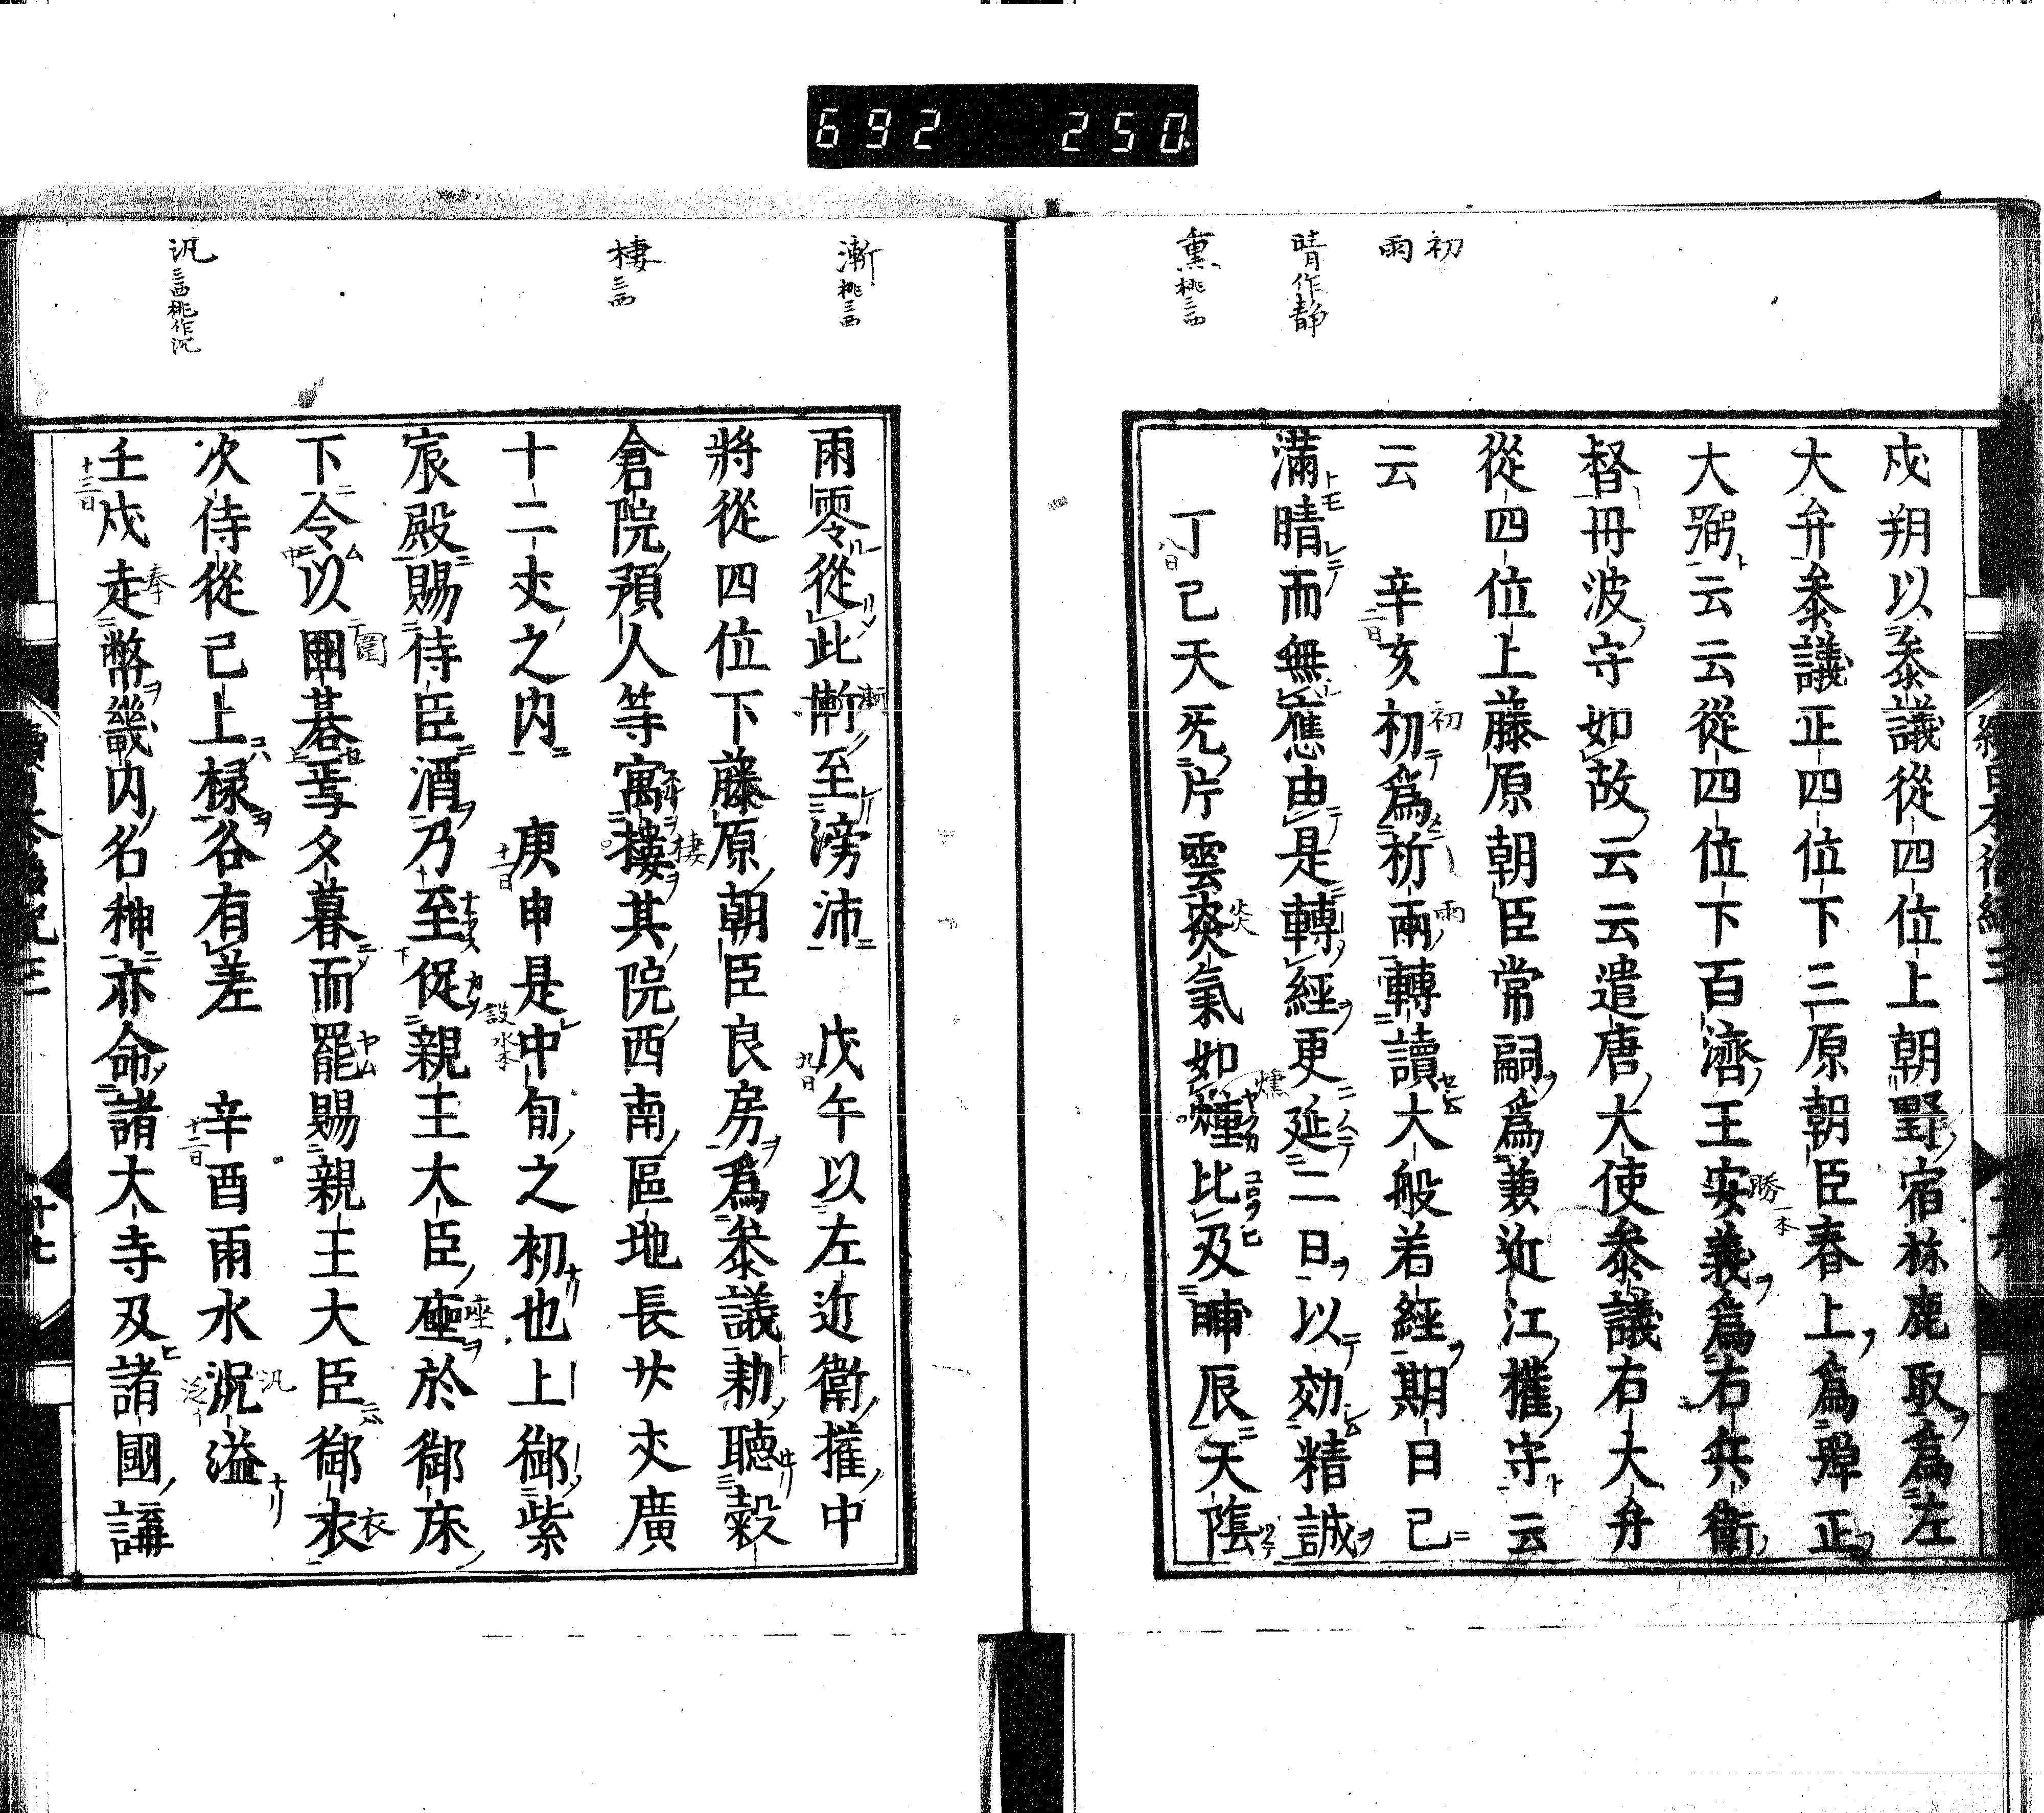 692 250
初
雨
晴作静
熏桃三西
戍朔以叅議從四位上朝野宿祢鹿取為左
大弁叅議正四位下三原朝臣春上為彈正
大弼云云從四位下百濟王安義為右兵衛
勝一本
督丹波守如故云云遣唐大使叅議右大弁
從四位上藤原朝臣常嗣為兼近江權守云
云　辛亥初為祈兩轉讀大般若經期日已
二日
初
雨
滿晴而無應由是轉經更延二日以効精誠
丁已天旡片雲炎氣如燻比及晡辰天隂
八日
炎
燻
漸桃三西
棲三西
汎三西桃作况
雨零從此慚至滂沛　戊午以左近衛權中
漸
九日
將從四位下藤原朝臣良房為叅議勅聽穀
倉院預人等寓棲其院西南區地長廿丈廣
棲
十二丈之内　庚申是中旬之初也上御紫
十一日
宸殿賜侍臣酒乃至促親王大臣座於御床
設水本
座
下令以圍碁焉夕暮而罷賜親王大臣御衣
圍
衣
次侍從已上祿各有差　辛酉雨水汎溢
十二日
汎
泛イ
壬戍走幣畿内名神亦命諸大寺及諸國講
十三日
奉
十七